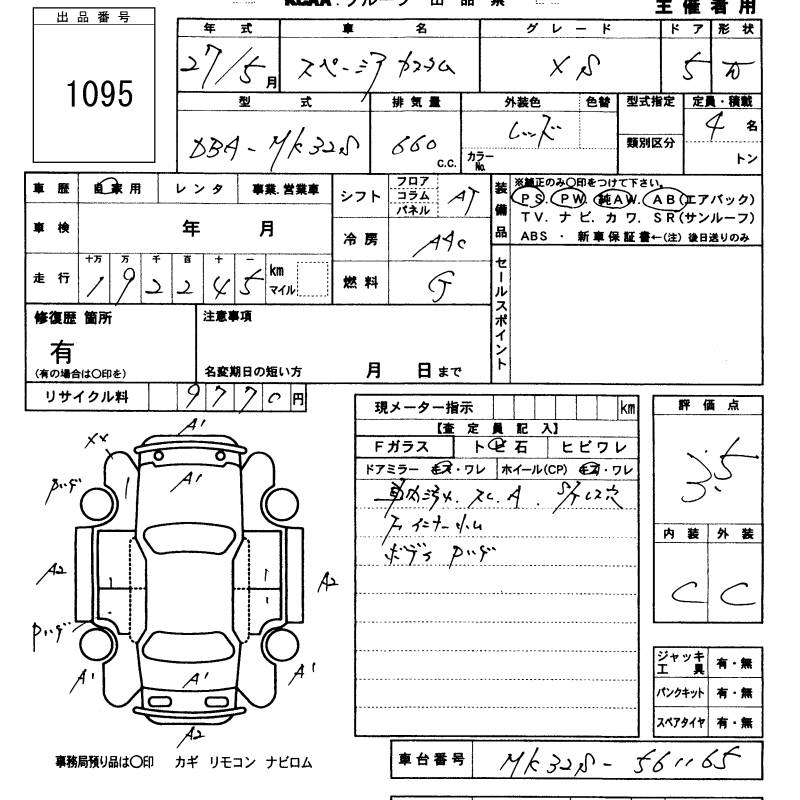 出品番号
1095
主催者用
年式 車名 グレード ドア 形状
27/5月 スペーシア カスタム XS 5
型式 排気量 外装色 色替 型式指定 定員・積載
DBA-MK32S 660 c.c. レッド カラーNo. 類別区分 4名 トン
車歴 自家用 レンタ 事業.営業車
シフト フロア コラム パネル AT
装備品 ※純正のみ○印をつけて下さい。
PS. PW. 純AW. AB(エアバック)
TV. ナビ. カワ. SR(サンルーフ)
ABS ・ 新車保証書←(注) 後日送りのみ
車検 年 月
冷房 AAC
走行 十万 万 千 百 十 一
192245 km マイル
燃料 G
セールスポイント
修復歴 箇所
有
(有の場合は○印を)
注意事項
名変期日の短い方 月 日まで
リサイクル料 9770円
現メーター指示 km
【査定員記入】
Fガラス トビ石 ヒビワレ
ドアミラー キズ・ワレ ホイール(CP) キズ・ワレ
ス.C.A.
ボディ
評価点
3.5
内装 外装
C C
ジャッキ工具 有・無
パンクキット 有・無
スペアタイヤ 有・無
A1
XX
A1
A2
A2
A1
A1
A1
A2
事務局預り品は○印 カギ リモコン ナビロム
車台番号 MK32S-561165